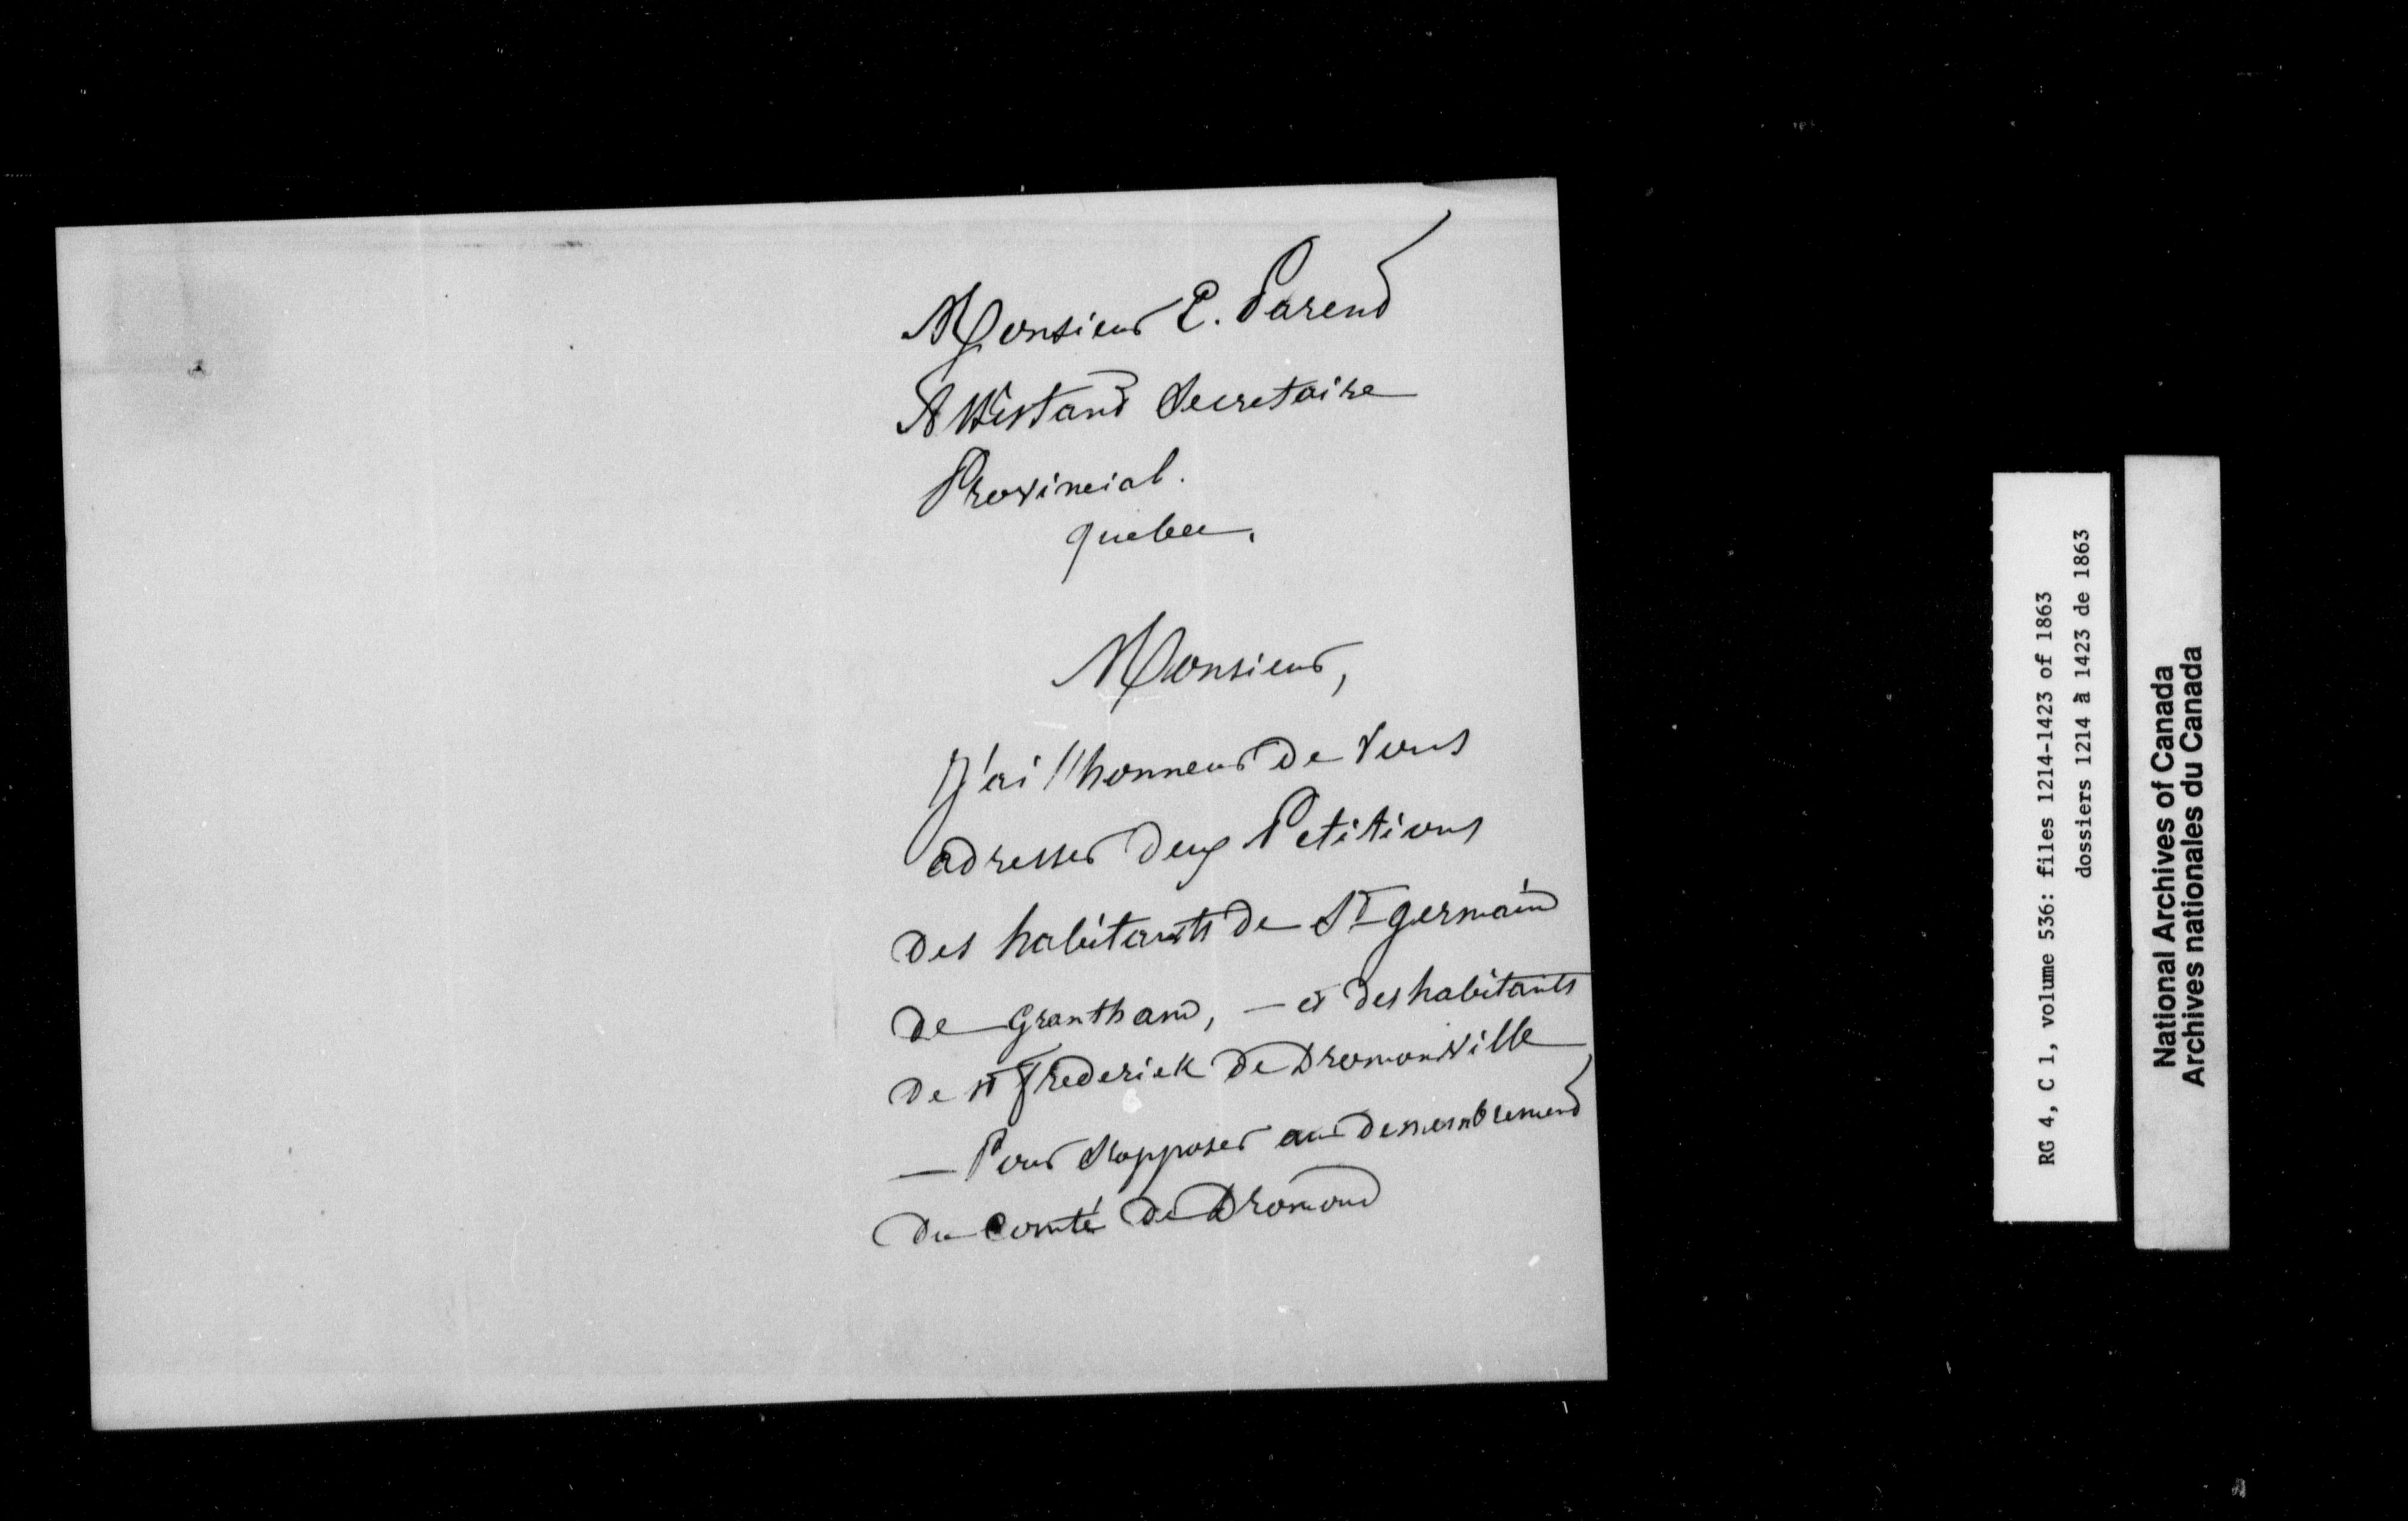 Monsieur E. Parend
Assistand Secretaire
Provincial.
quebec.
Monsieur,
J'ai l'honneur de vous
adresser deux Petitions
des habitants de St germain
de Grantham, — et des habitants
de st Frederick de Dromondville
— Pour s'opposer au demembrement
du Comté de Dromond
RG 4, C 1, volume 536: files 1214-1423 of 1863
dossiers 1214 à 1423 de 1863
National Archives of Canada
Archives nationales du Canada